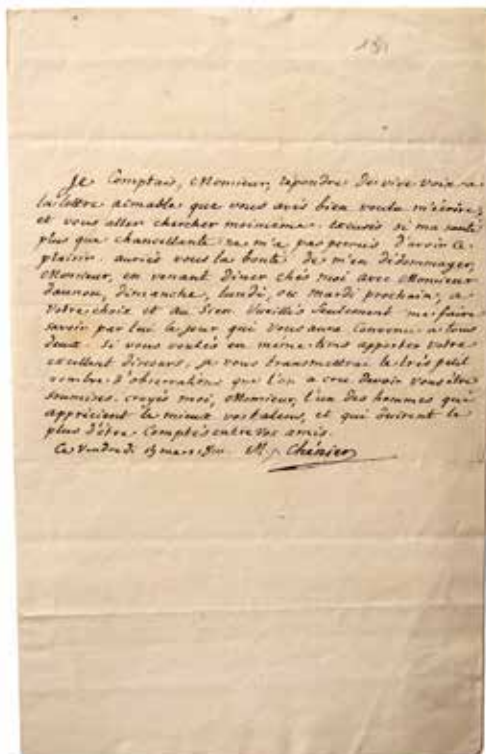 Je Comptais, Monsieur, repondre de vive voix a
la lettre aimable que vous avés bien voulu m'écrire,
et vous aller chercher moimême. excusés si ma santé
plus que chancellante ne m'a pas permis d'avoir ce
plaisir. auriés vous la bonté de m'en dédommager,
Monsieur, en venant diner chés moi avec Monsieur
daunou, dimanche, lundi, ou mardi prochain, a
votre choix et au Sien. Veuillés Seulement me faire
savoir par lui le jour qui vous aura Convenu a tous
deux. Si vous voulés en même tems apporter votre
excellent discours, je vous transmettrai le très petit
nombre d'observations que l'on a cru devoir vous être
soumises. croyés moi, Monsieur, l'un des hommes qui
apprécient le mieux vos talens, et qui désirent le
plus d'être Comptés entre vos amis.
Ce Vendredi mars M. Chénier